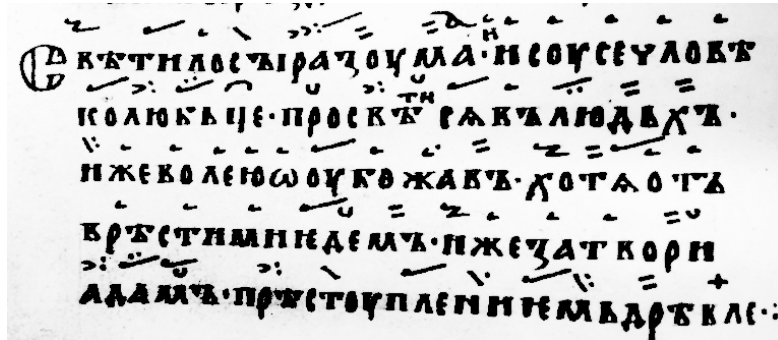 Свѣтилосъıразоума·иисоусечловѣ
колюбьце·просвѣтисѧвълюдьхъ·
ижеволеюѡоубожавъ·хотѧотъ
врѣстимиѥдемъ·ижезатвори
адамъ·прѣстоуплениѥмьдрѣвле·: